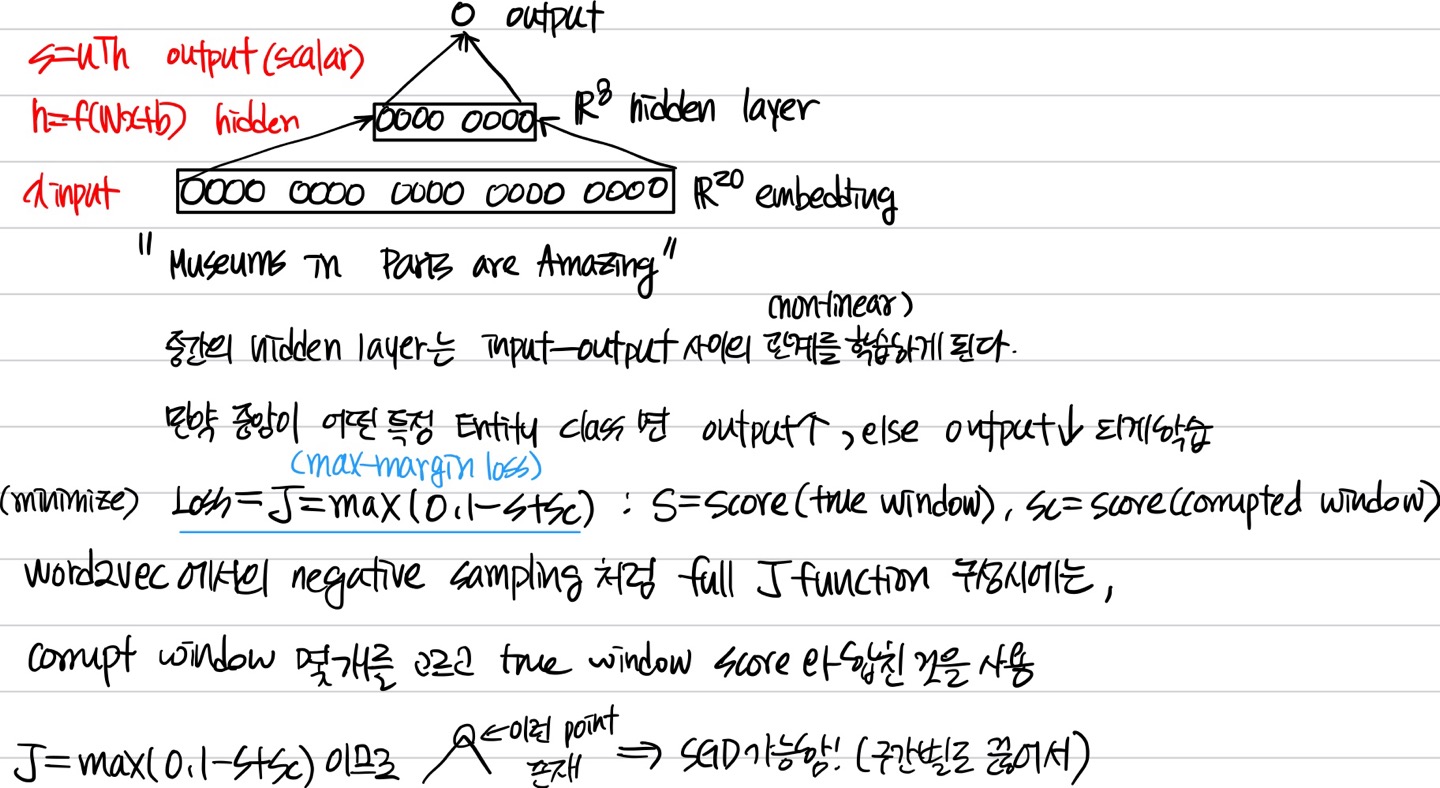 O output
s=uTh output(scalar)
h=f(Wx+b) hidden
0000 0000
R8 hidden layer
x input
0000 0000 0000 0000 0000
R20 embedding
"Museums in Paris are Amazing"
(nonlinear)
중간의 hidden layer는 input-output 사이의 관계를 학습하게 된다.
만약 중앙이 어떤 특정 Entity class 면 output↑, else output↓ 되게학습
(max-margin loss)
(minimize) Loss=J=max(0,1-s+sc) : S=score(true window), sc=score(corrupted window)
word2vec 에서의 negative sampling 처럼 full J function 구성시에는,
corrupt window 몇개를 고르고 true window score 와 합친 것을 사용
J=max(0,1-s+sc) 이므로
←이런 point
존재
⇒ SGD가능함! (구간별로 끊어서)